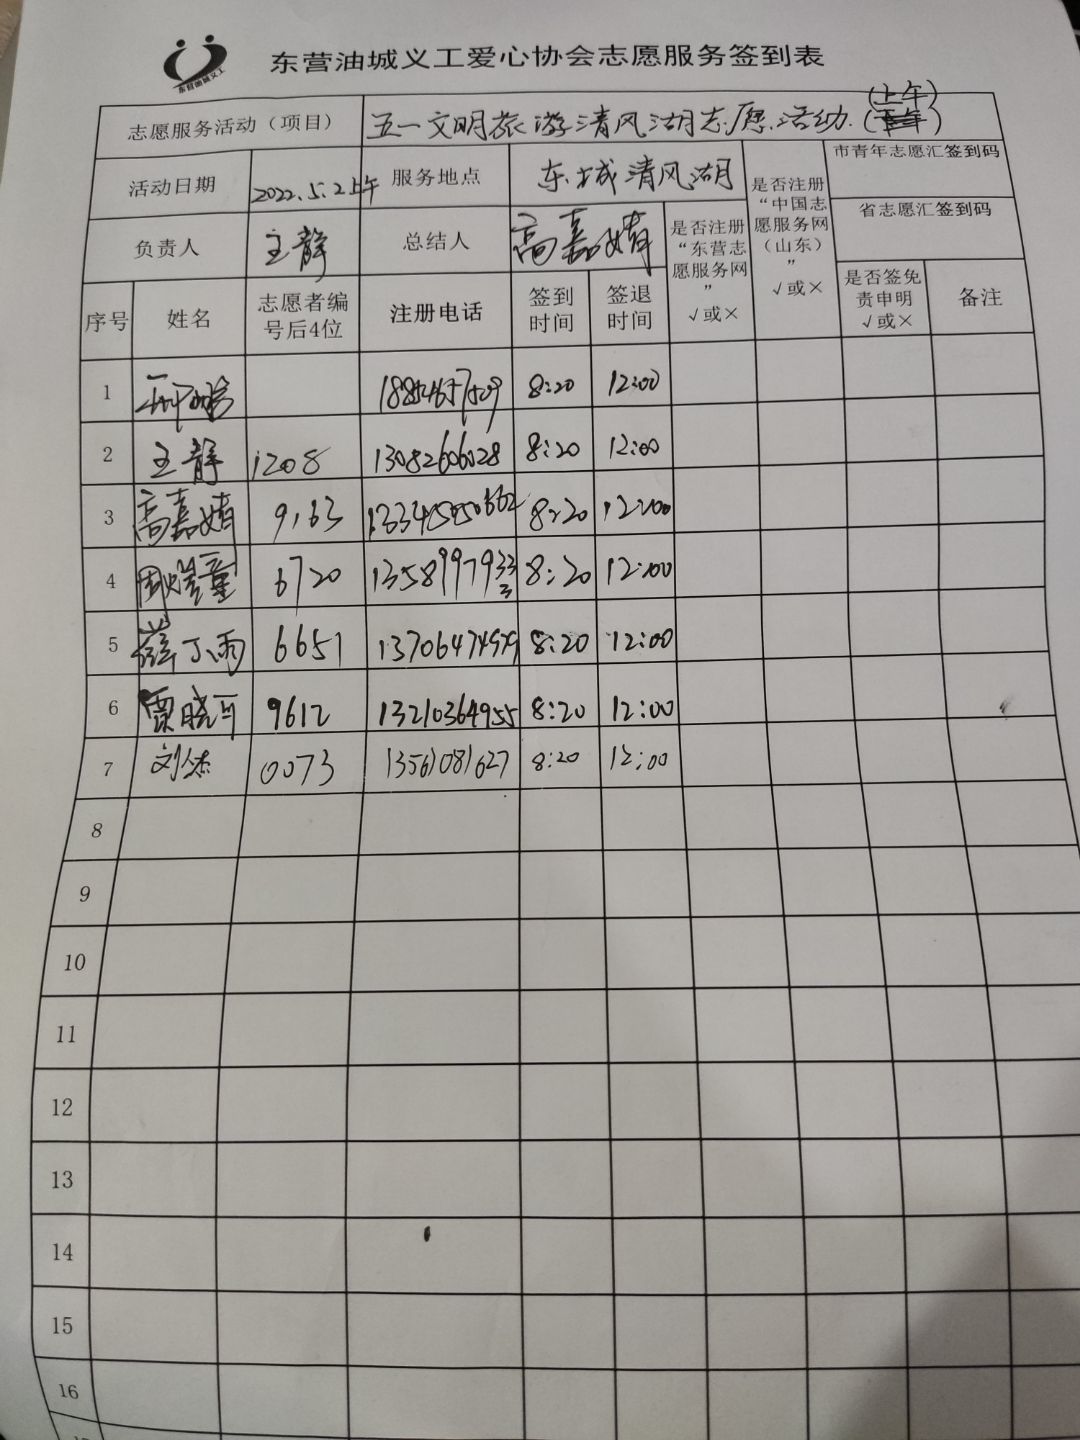 东营油城义工
东营油城义工爱心协会志愿服务签到表
志愿服务活动（项目） 五一文明旅游清风湖志愿活动.（上午）
活动日期 2022.5.2上午 服务地点 东城清风湖
负责人 王静 总结人 高嘉婧
是否注册“东营志愿服务网” √或×
是否注册“中国志愿服务网（山东）” √或×
市青年志愿汇签到码
省志愿汇签到码
序号 姓名 志愿者编号后4位 注册电话 签到时间 签退时间 是否签免责申明 √或× 备注
1 8:20 12:00
2 王静 1208 13082606028 8:20 12:00
3 高嘉婧 9163 8:20 12:00
4 6720 13589979333 8:20 12:00
5 薛丁雨 6651 8:20 12:00
6 贾晓可 9612 13210364955 8:20 12:00
7 刘杰 0073 13561081627 8:20 12:00
8
9
10
11
12
13
14
15
16